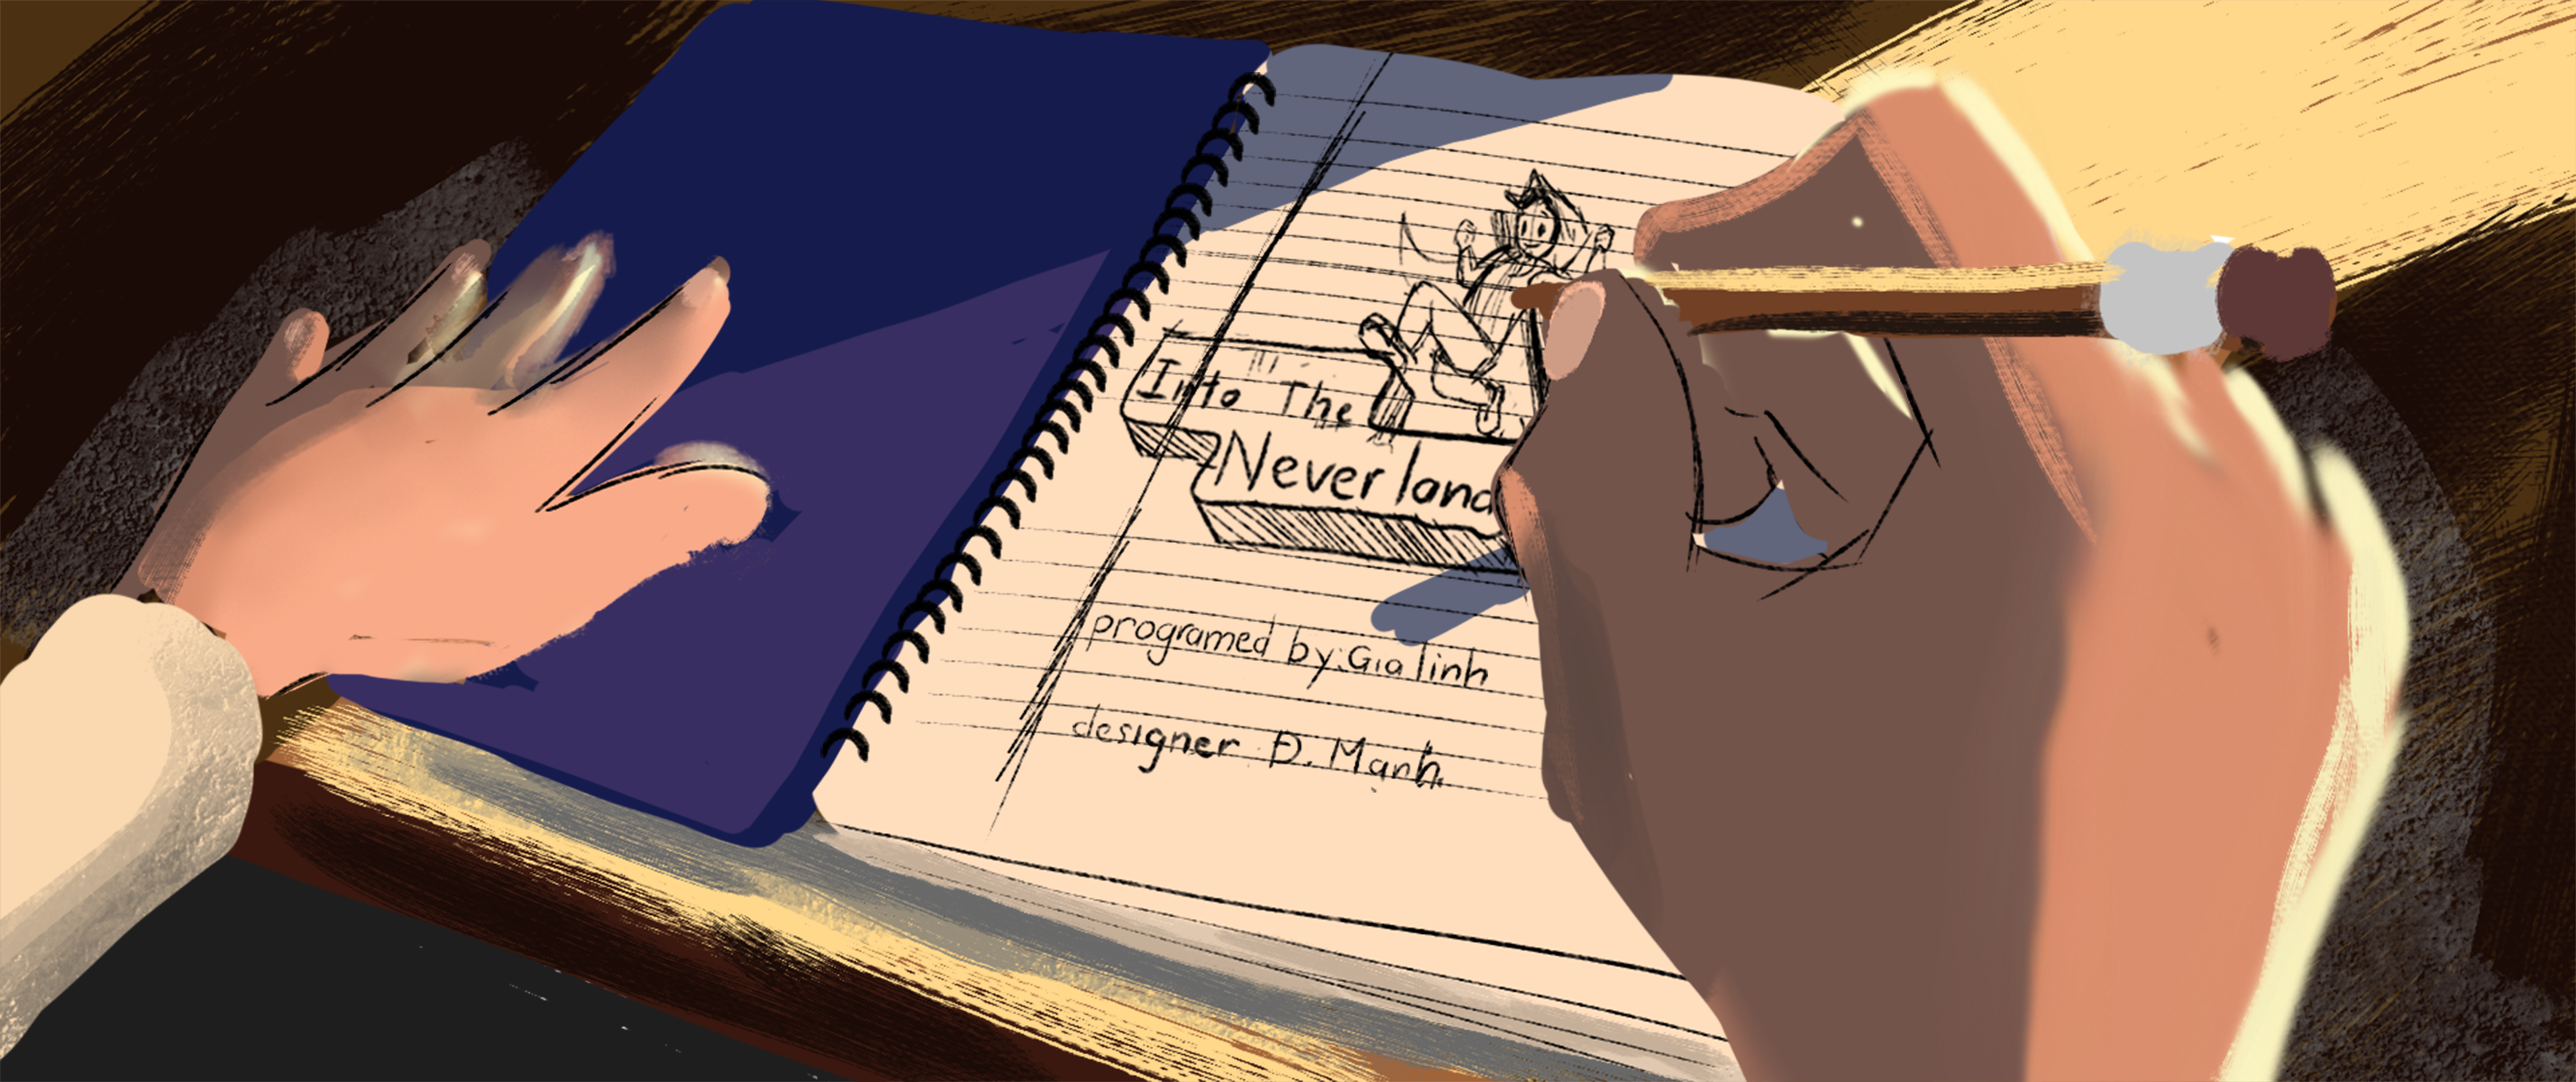 Into The
Never land
programed by: Gia linh
designer Đ. Mạnh.